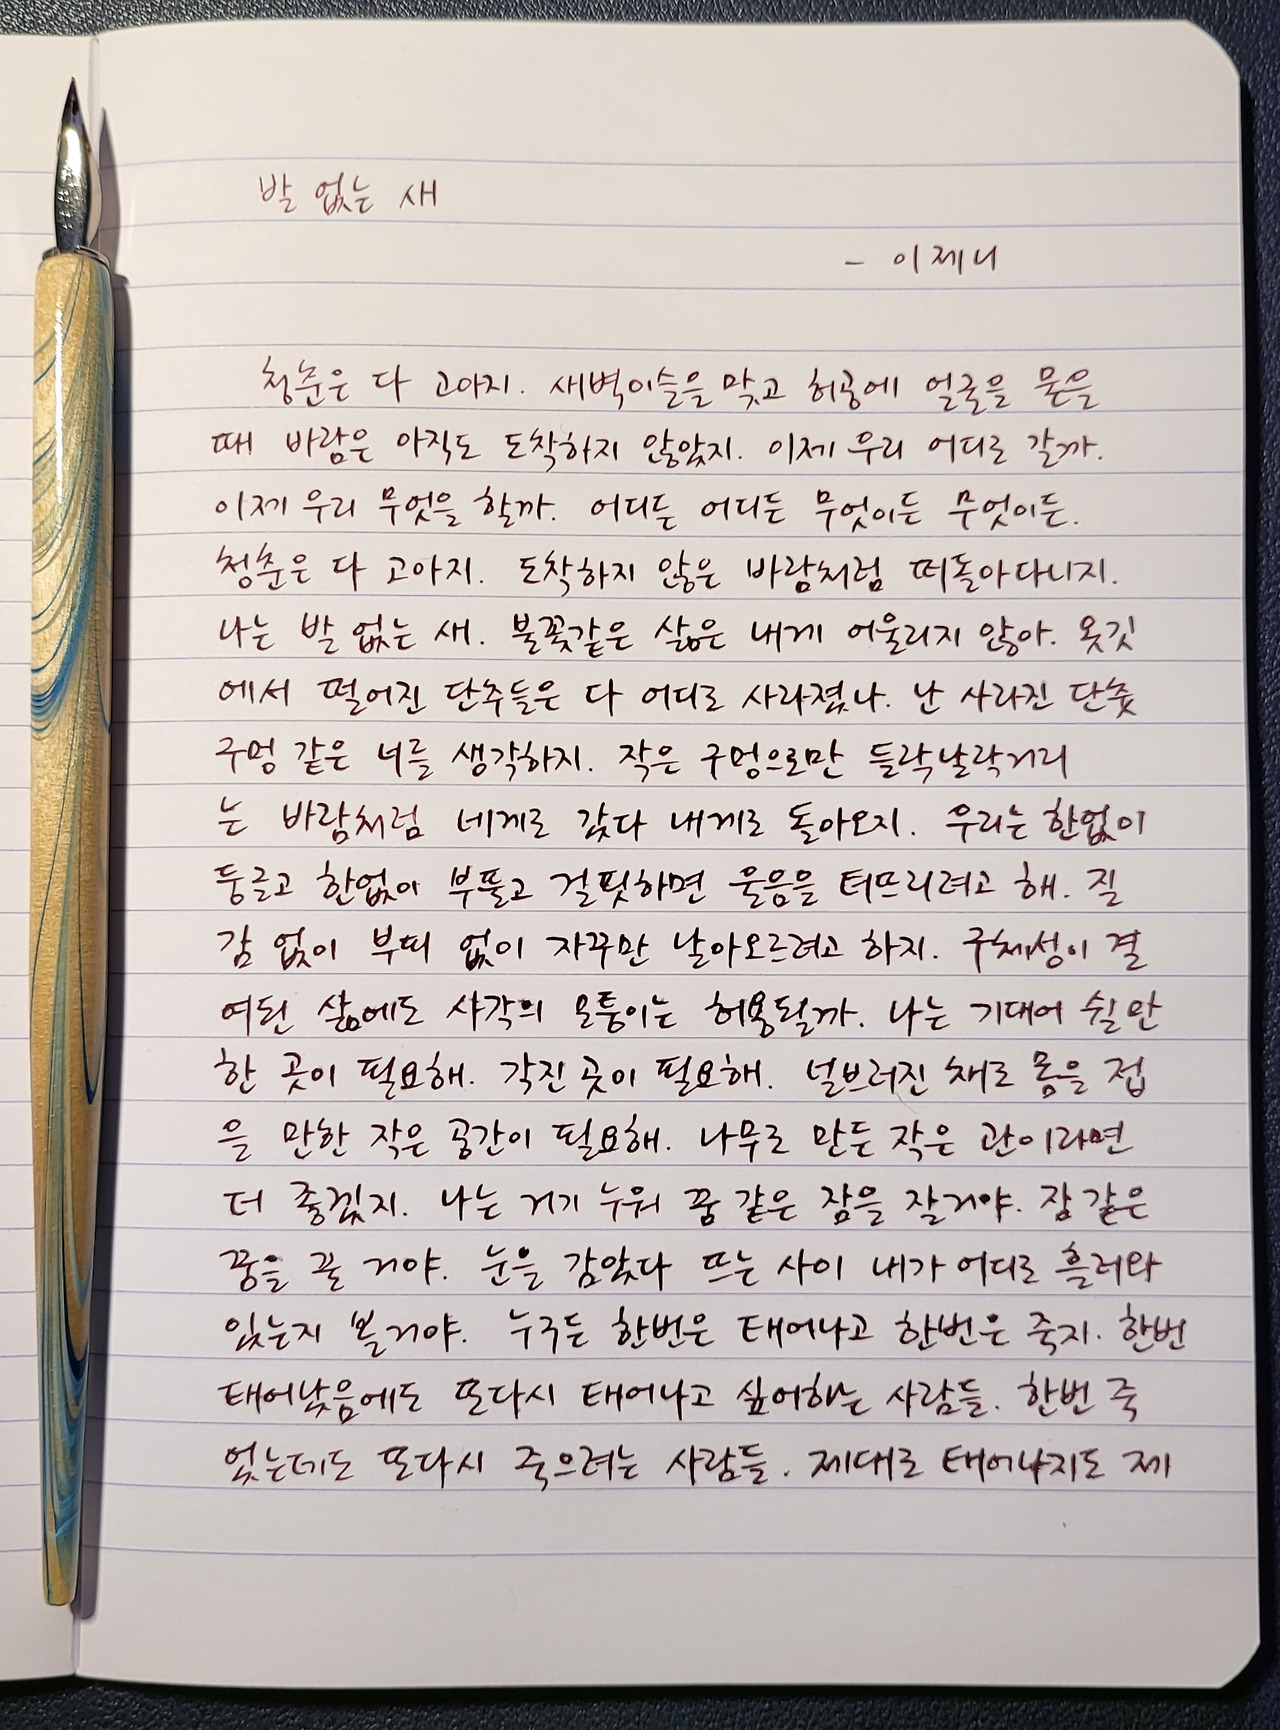 발 없는 새
- 이제니
청춘은 다 고아지. 새벽이슬을 맞고 허공에 얼굴을 묻을
때 바람은 아직도 도착하지 않았지. 이제 우리 어디로 갈까.
이제 우리 무엇을 할까. 어디든 어디든 무엇이든 무엇이든.
청춘은 다 고아지. 도착하지 않은 바람처럼 떠돌아다니지.
나는 발 없는 새. 불꽃같은 삶은 내게 어울리지 않아. 옷깃
에서 떨어진 단추들은 다 어디로 사라졌나. 난 사라진 단춧
구멍 같은 너를 생각하지. 작은 구멍으로만 들락날락거리
는 바람처럼 네게로 갔다 내게로 돌아오지. 우리는 한없이
둥글고 한없이 부풀고 걸핏하면 울음을 터뜨리려고 해. 질
감 없이 부피 없이 자꾸만 날아오르려고 하지. 구체성이 결
여된 삶에도 사각의 모퉁이는 허용될까. 나는 기대어 쉴 만
한 곳이 필요해. 각진 곳이 필요해. 널브러진 채로 몸을 접
을 만한 작은 공간이 필요해. 나무로 만든 작은 관이라면
더 좋겠지. 나는 거기 누워 꿈 같은 잠을 잘거야. 잠 같은
꿈을 꿀 거야. 눈을 감았다 뜨는 사이 내가 어디로 흘러와
있는지 볼거야. 누구든 한번은 태어나고 한번은 죽지. 한번
태어났음에도 또다시 태어나고 싶어하는 사람들. 한번 죽
었는데도 또다시 죽으려는 사람들. 제대로 태어나지도 제